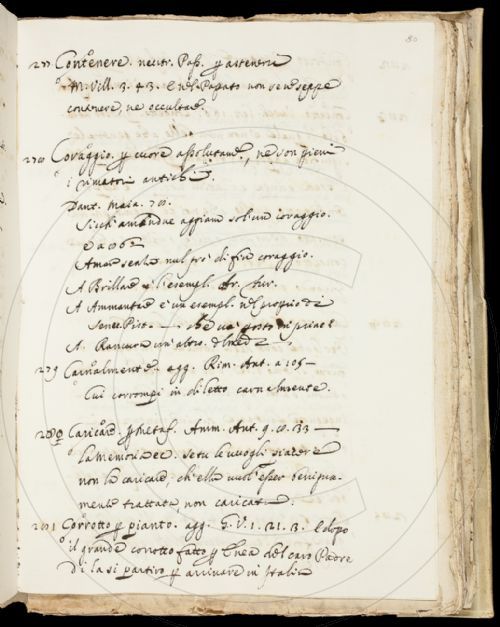 80
277 Contenere. neutr. Pass. p astenersi
M. Vill. 3. 43. e nel Papato non se ne seppe
contenere, ne occultar.
278 Coraggio. p cuore assolutam., ne son pieni
i rimatori antichi.
Dant. Maia. 70.
Sicch' amendue aggiam sol' un coraggio.
e a 06
Amor sealta nul pro' di fin coraggio.
A Brillare e l'esempl. Fr. Iur.
A Ammantare e un esempl. nel proprio di
Senec. Pist. — che va posto in prima
A. Rancura un' altro.
279 Carnalmente. agg. Rim. Ant. a 105 —
Cui corrompi in diletto carnalmente.
280 Caricare. p metaf. Amm. Ant. 9. co. 33 —
la Memoria se tu le vuogli piacere
non la caricare; ch'ella vuol' esser benigna-
mente trattata, non caricata.
281 Corrotto p pianto. agg. G. V. 1. 21. 3. e dopo
il grande corrotto fatto p Enea del caro Padre
di la si partiro p arrivare in Italia